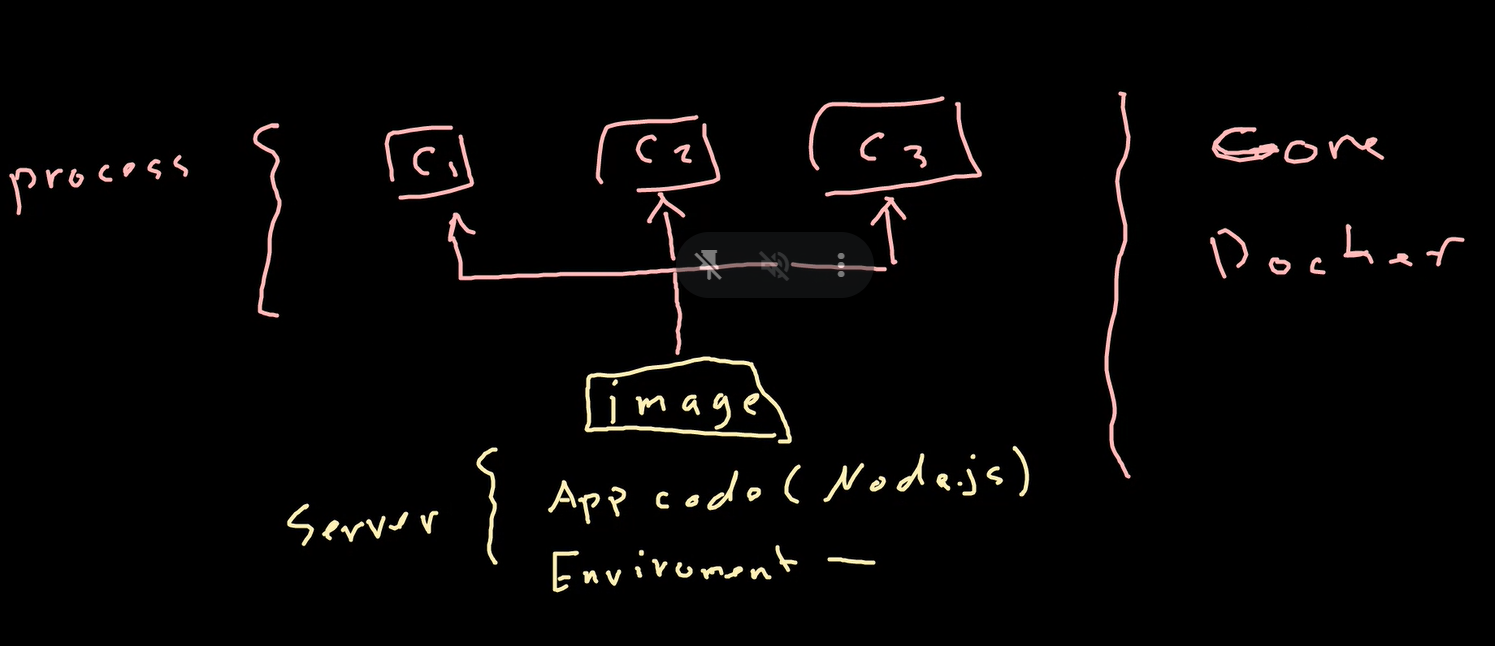 process
C1
C2
C3
Core
Docker
image
Server
App code (Node.js)
Enviroment —